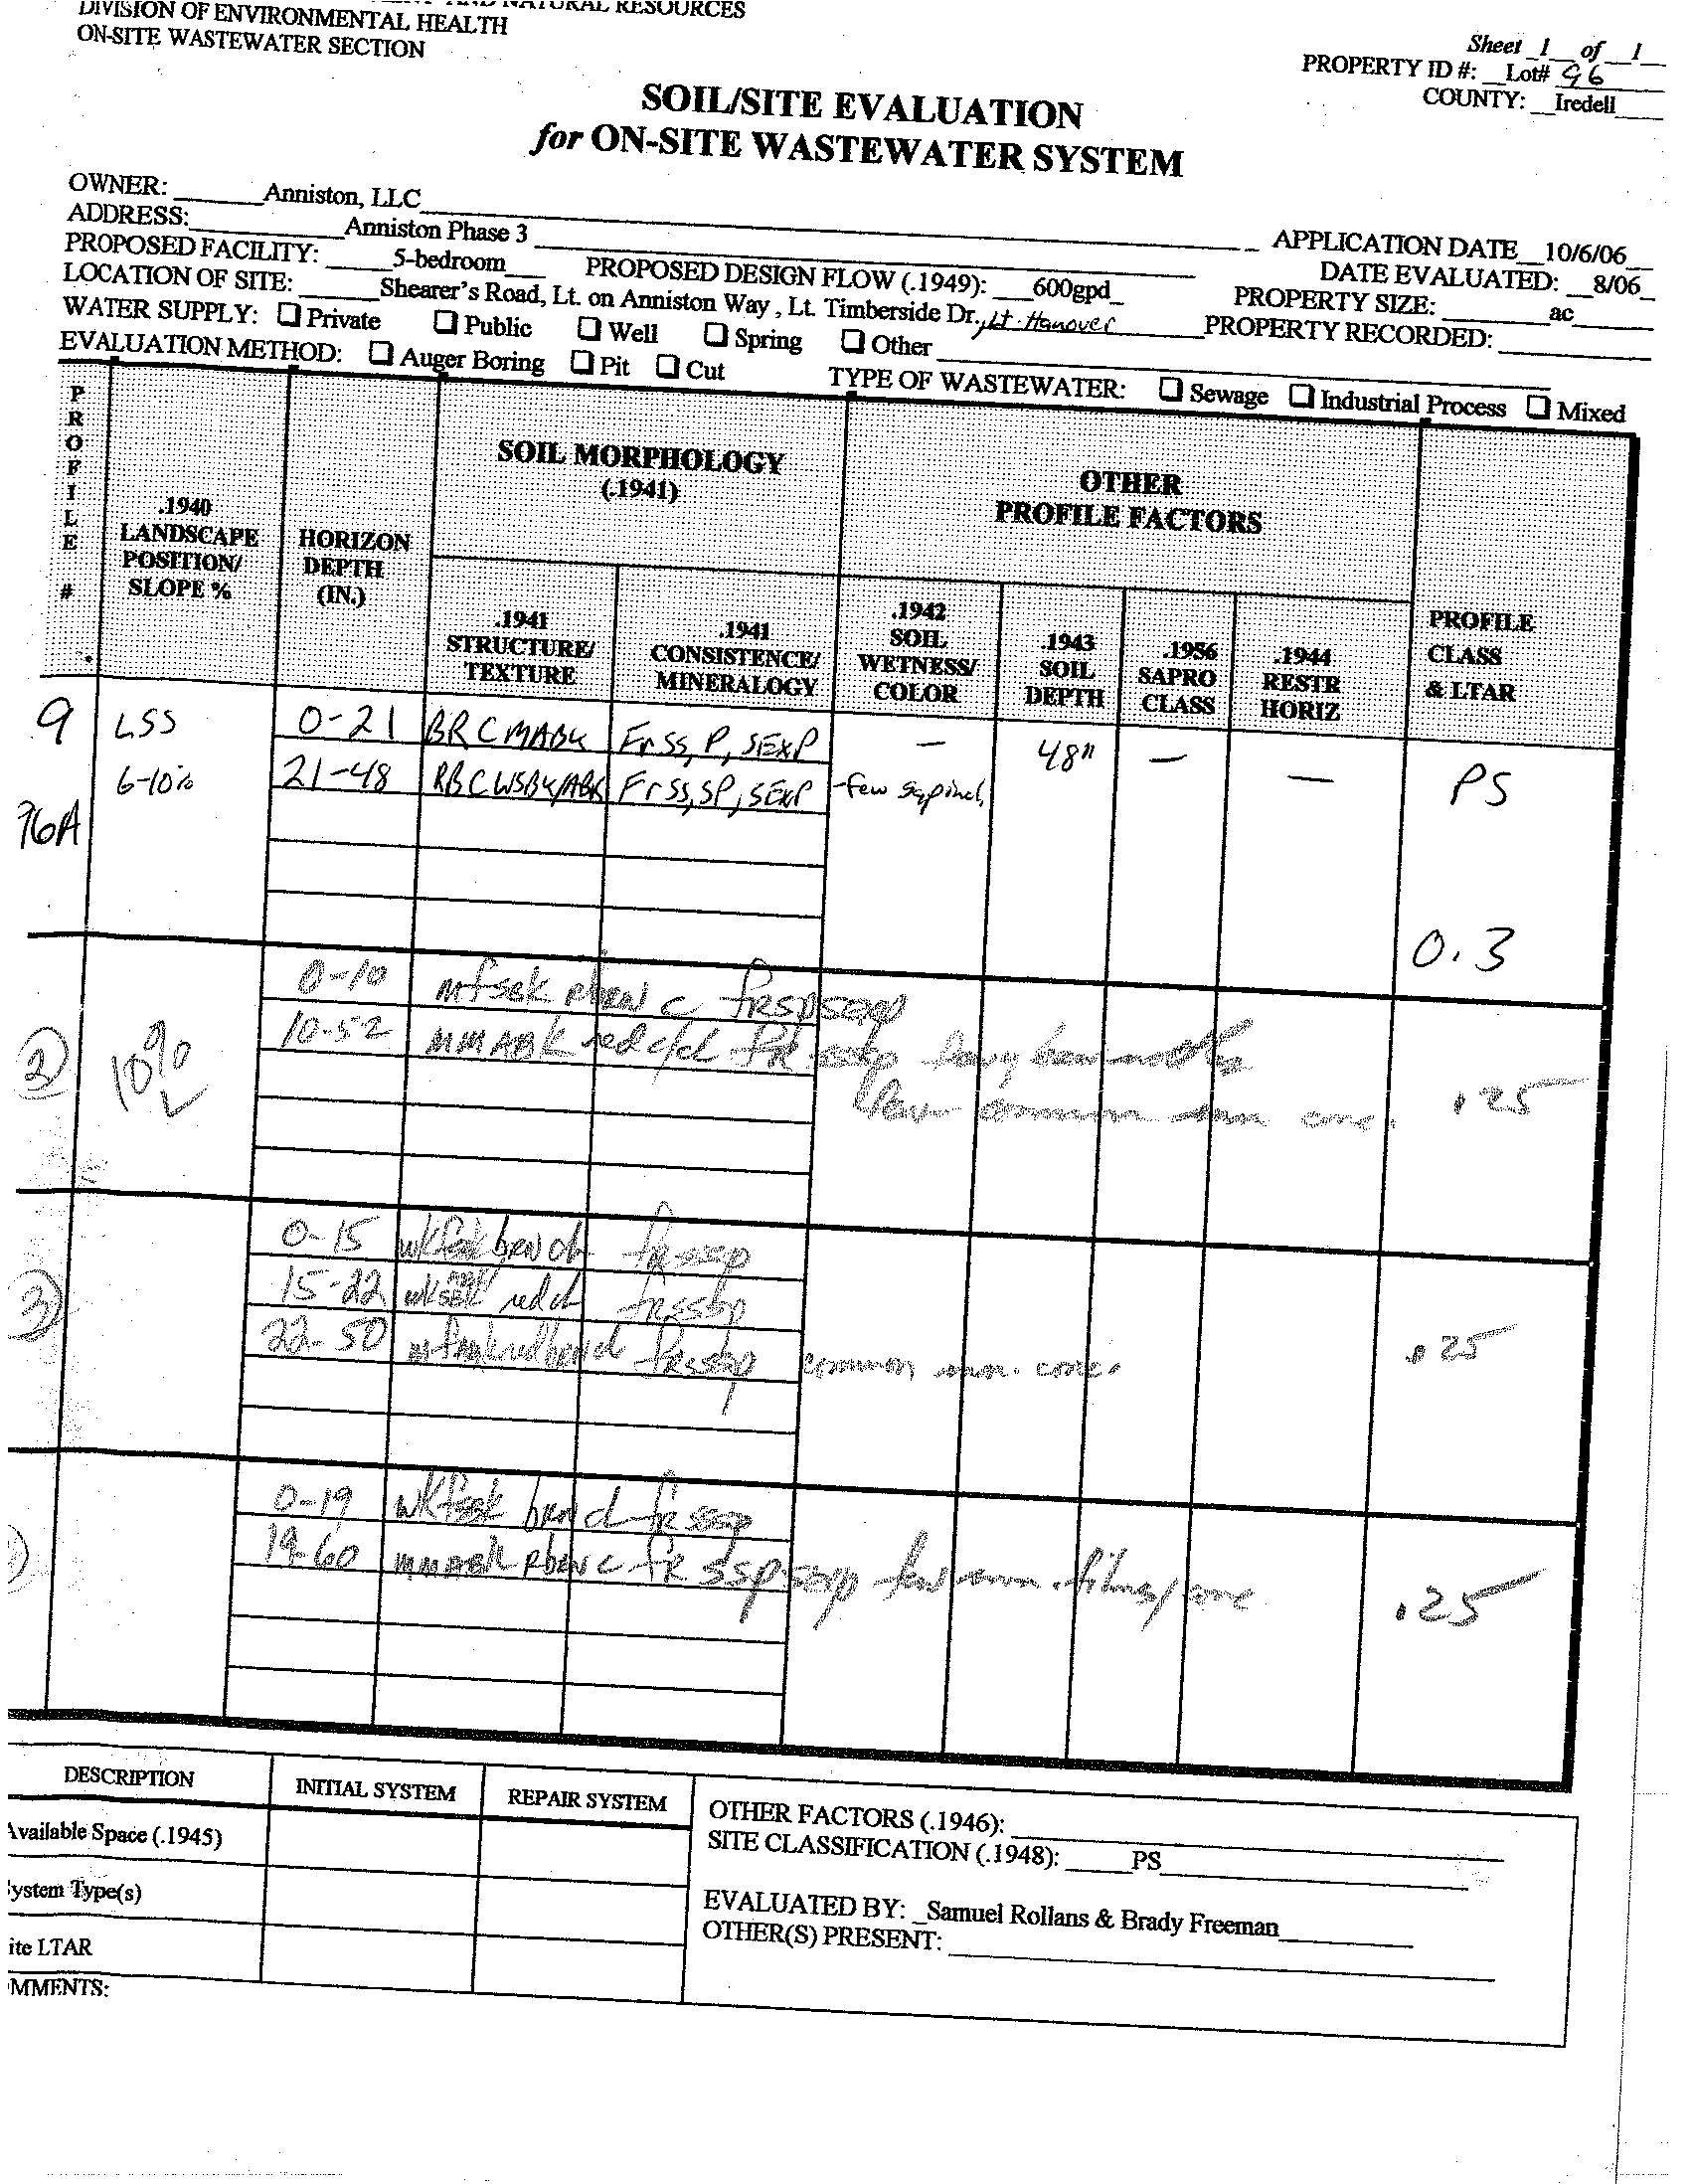 AND NATURAL RESOURCES
DIVISION OF ENVIRONMENTAL HEALTH
ON-SITE WASTEWATER SECTION
Sheet 1 of 1
PROPERTY ID #: Lot# 96
COUNTY: Iredell
SOIL/SITE EVALUATION
for ON-SITE WASTEWATER SYSTEM
OWNER: Anniston, LLC
ADDRESS: Anniston Phase 3
APPLICATION DATE 10/6/06
PROPOSED FACILITY: 5-bedroom PROPOSED DESIGN FLOW (.1949): 600gpd
DATE EVALUATED: 8/06
LOCATION OF SITE: Shearer's Road, Lt. on Anniston Way , Lt. Timberside Dr., Lt. Hanover
PROPERTY SIZE: ac
WATER SUPPLY: ❑ Private ❑ Public ❑ Well ❑ Spring ❑ Other
PROPERTY RECORDED:
EVALUATION METHOD: ❑ Auger Boring ❑ Pit ❑ Cut TYPE OF WASTEWATER: ❑ Sewage ❑ Industrial Process ❑ Mixed
PROFILE #
.1940 LANDSCAPE POSITION/ SLOPE %
HORIZON DEPTH (IN.)
SOIL MORPHOLOGY (.1941)
.1941 STRUCTURE/ TEXTURE
.1941 CONSISTENCE/ MINERALOGY
OTHER PROFILE FACTORS
.1942 SOIL WETNESS/ COLOR
.1943 SOIL DEPTH
.1956 SAPRO CLASS
.1944 RESTR HORIZ
PROFILE CLASS & LTAR
9 LSS 0-21 BRCMABK FrSS, P, SEXP — 48" — — PS
6-10% 21-48 RBCWSBK/ABK FrSS, SP, SEXP -few
76A
0.3
0-10 c frspsexp
2 10% L 10-52 mmABK red c/cl
common mn conc. .25
0-15 wkfsbk brn cl frssp
3 15-22 red cl frsssp
22-50 common mn. conc. .25
0-19 wkfsbk brn cl fr sssp
19-60 mmABK rbrn c fr ssp sexp few mn. films/conc .25
DESCRIPTION INITIAL SYSTEM REPAIR SYSTEM
Available Space (.1945)
ystem Type(s)
ite LTAR
MMENTS:
OTHER FACTORS (.1946):
SITE CLASSIFICATION (.1948): PS
EVALUATED BY: Samuel Rollans & Brady Freeman
OTHER(S) PRESENT: